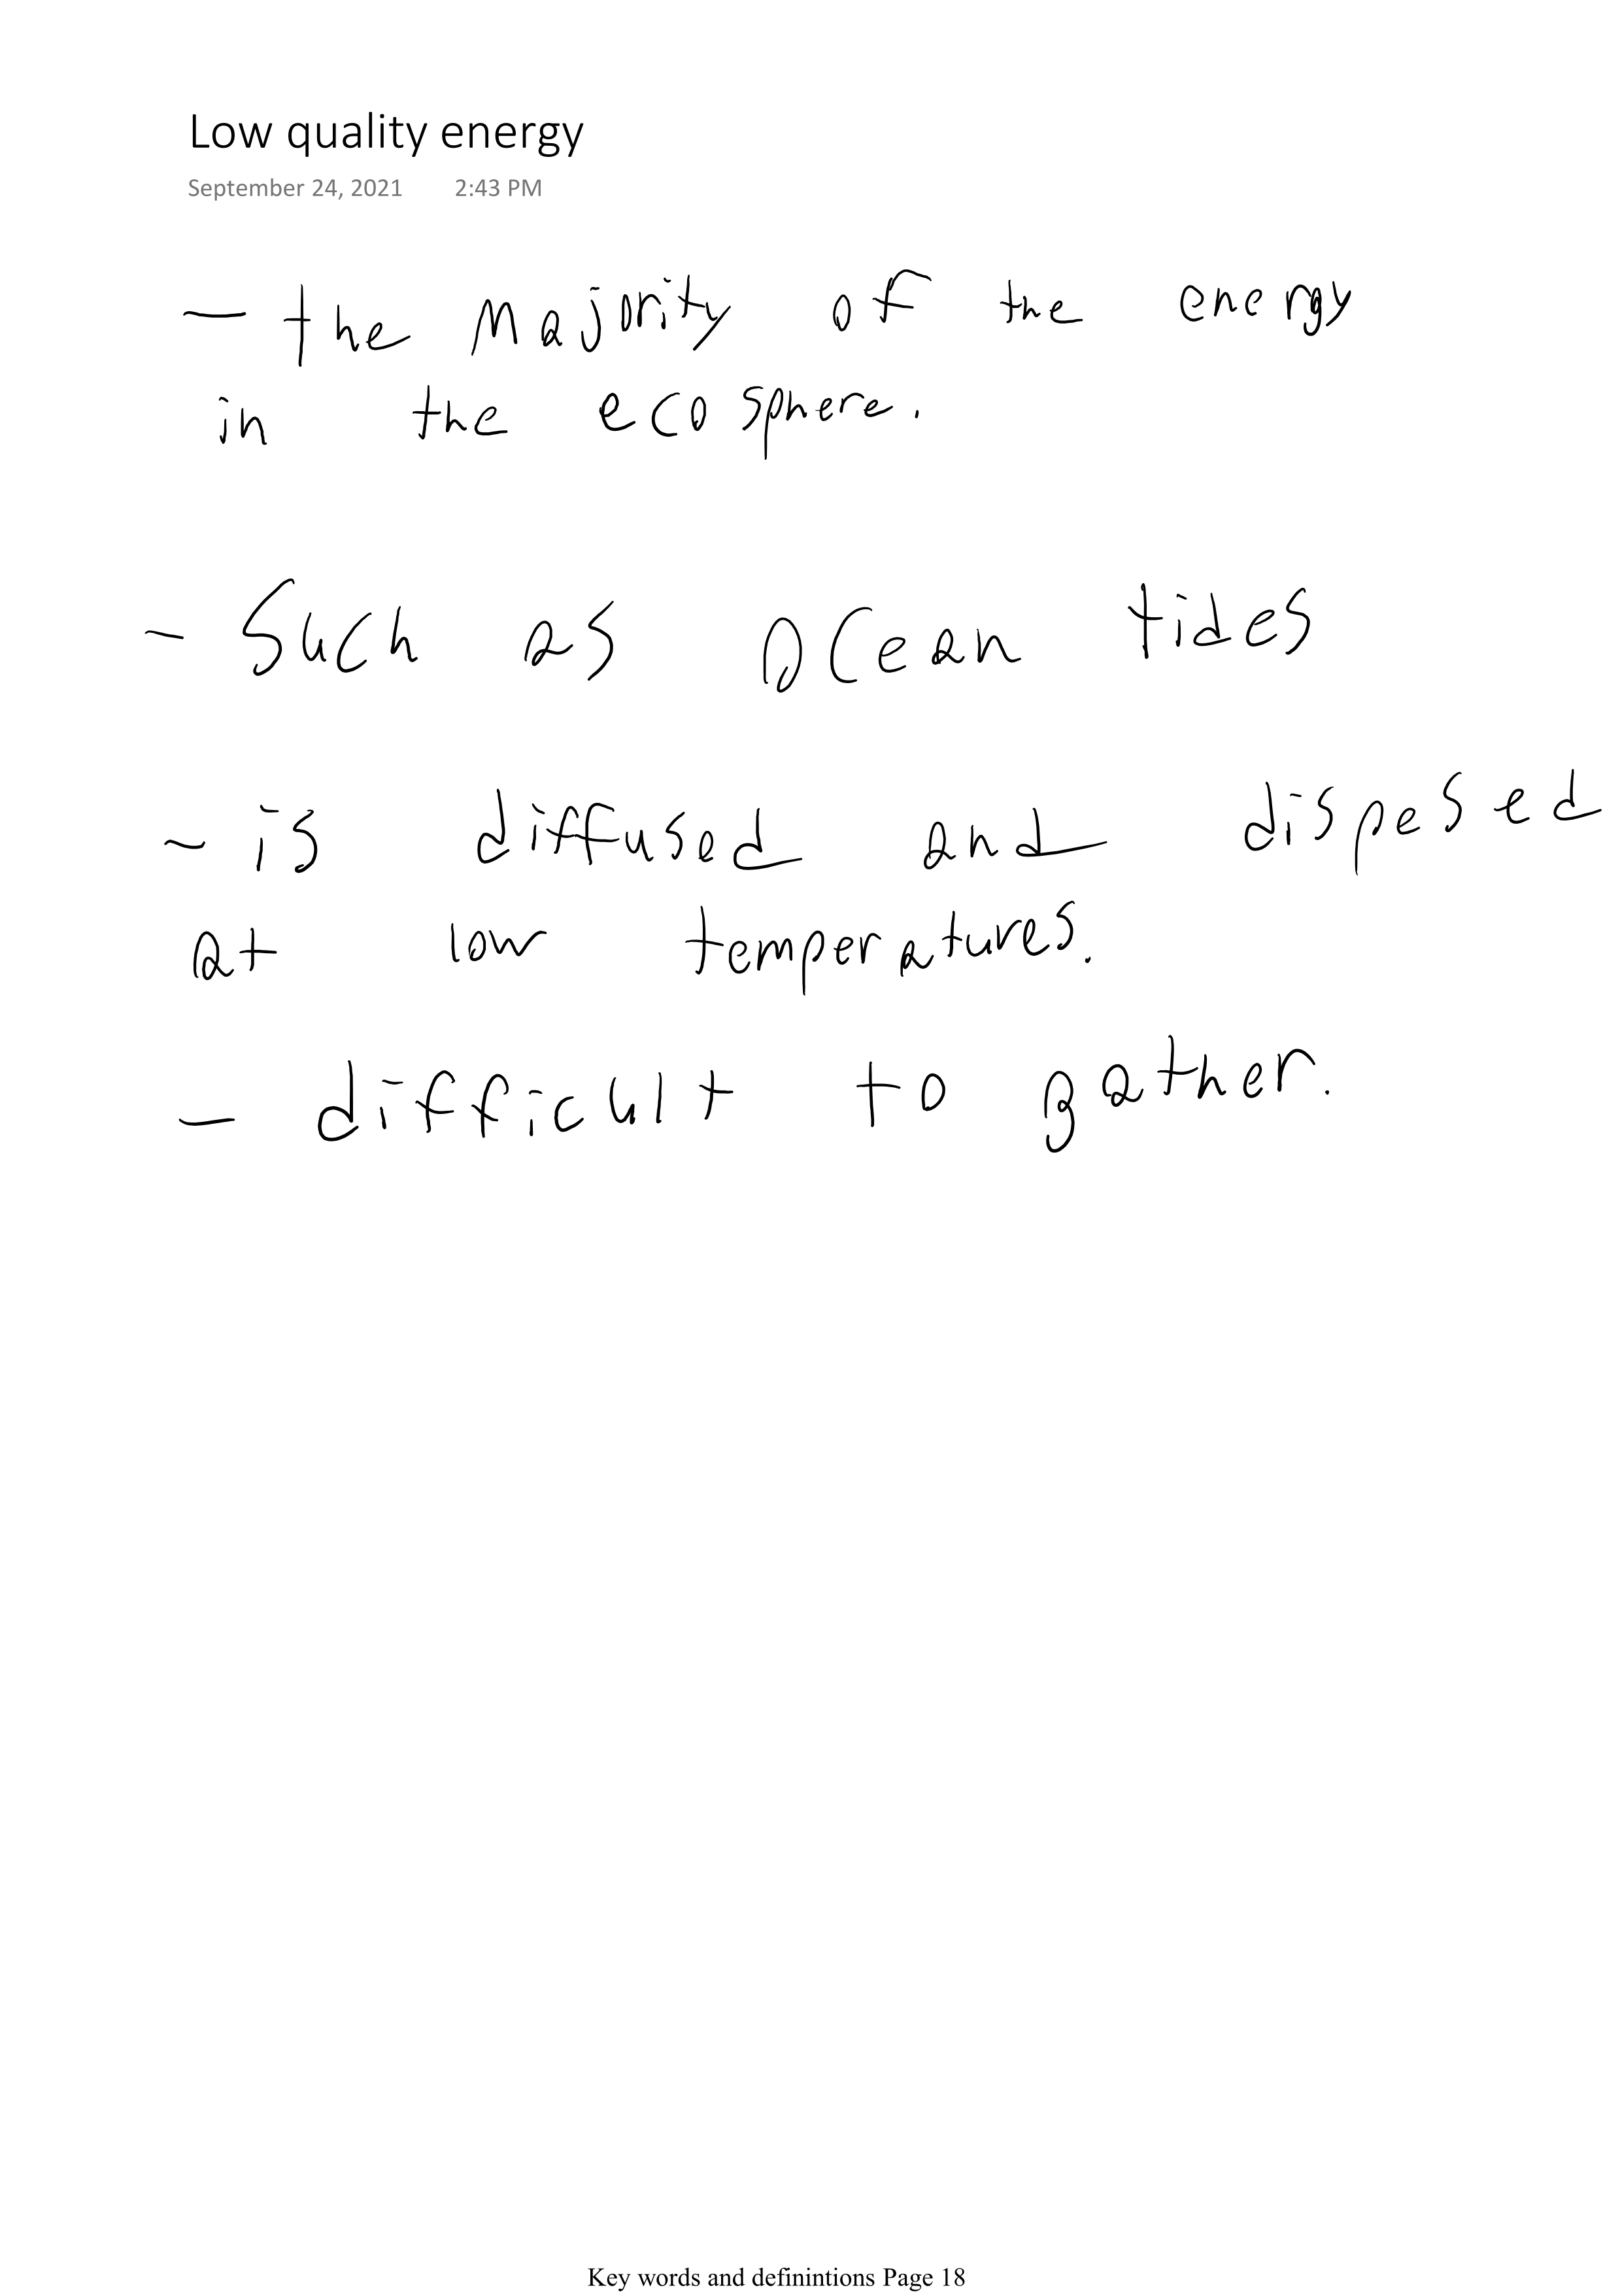 Low quality energy
September 24, 2021 2:43 PM
- the Majority of the energy
in the ecosphere.
- Such as Ocean tides
- is diffused and dispesed
at low temperatures.
- difficult to gather.
Key words and definintions Page 18